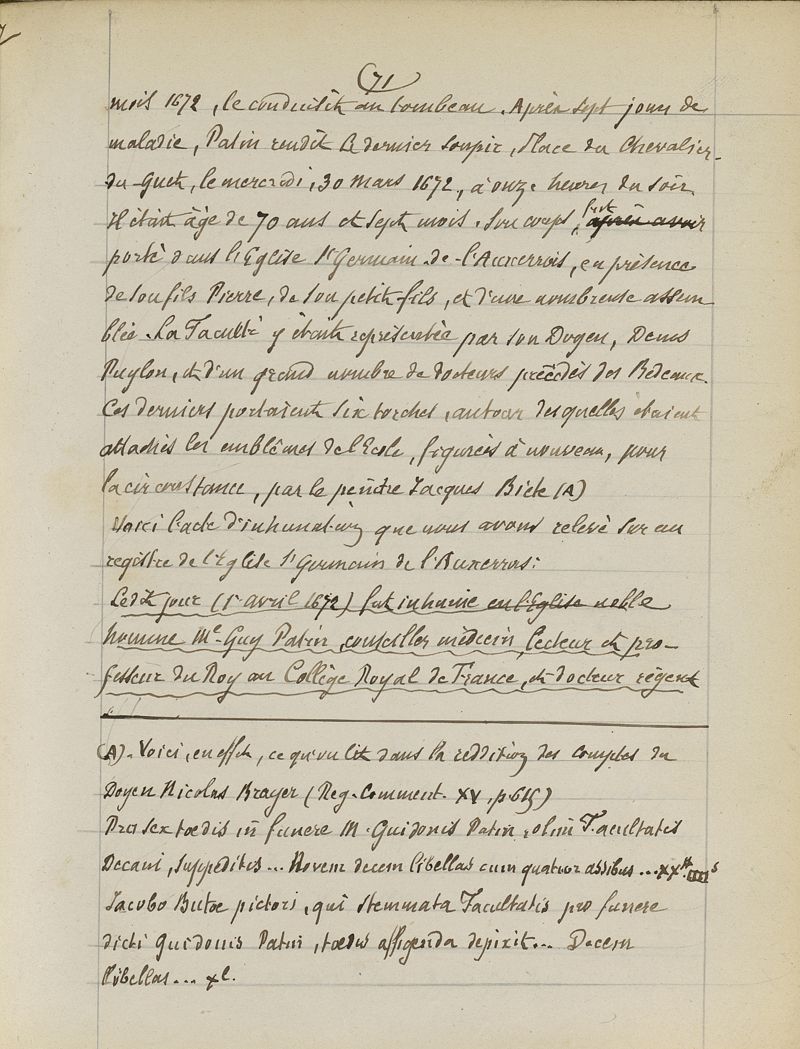 (71)
mois 1672, le conduisit au tombeau. Après sept jours de
maladie, Patin rendit le dernier soupir, Place du Chevalier-
du-Guet, le mercredi, 30 mars 1672, à onze heures du soir.
Il était âgé de 70 ans et sept mois. Son corps, fut après avoir
porté dans l'Eglise St Germain-de-l'Auxerrois, en présence
de son fils Pierre, de son petit-fils, et d'une nombreuse assem
blée. La Faculté y était représentée par son Doyen, Denis
Puylon, et d'un grand nombre de docteurs précédés des Bedeaux.
Ces derniers portaient six torches, autour desquelles étaient
attachés les emblêmes de l'Ecole, figurées à nouveau, pour
la circonstance, par le peintre Jacques Biete (A)
Voici l'acte d'inhumation que nous avons relevé sur un
registre de l'Eglise St Germain de l'Auxerrois:
Ledit jour (1er avril 1672) fut inhumé en l'Eglise noble
homme Me Guy Patin, conseiller médecin, lecteur et pro-
fesseur du Roy au Collège Royal de France, et docteur régent
(A). Voici, en effet, ce qu'on lit dans la reddition des comptes du
Doyen Nicolas Brayer (Reg. Comment. XV, p. 615)
Pro sex tœdis in funere M. Guidonis Patin, olim Facultatis
Decani, suppeditis... Novem decem libellas cum quatuor assibus... xx tt. IIII s
Jacobo Butœ pictori, qui stemmata Facultatis pro funere
dicti Guidonis Patin, tœdis affigenda depixit... Decem
libellas... xl.